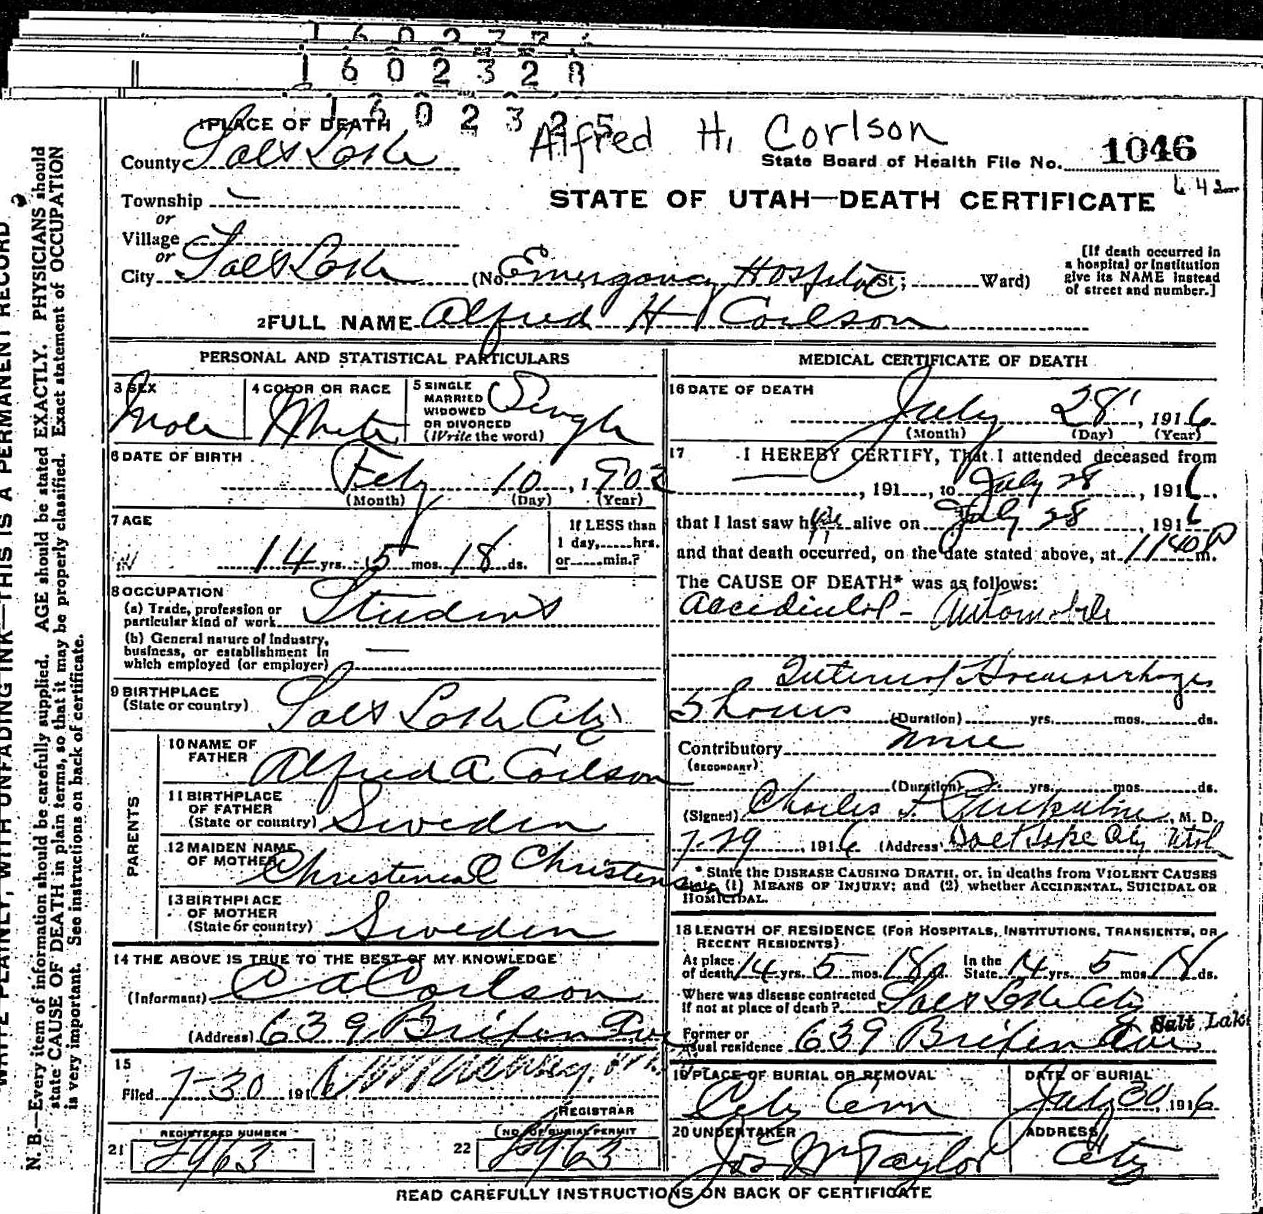 1 6 0 2 3 2 8
1 6 0 2 3 2 5
Alfred H. Corlson
1 PLACE OF DEATH
County Salt Lake
State Board of Health File No. 1046
Township —
or
Village
or
STATE OF UTAH—DEATH CERTIFICATE
City Salt Lake (No. Emergency Hospital St; Ward)
[If death occurred in a hospital or institution give its NAME instead of street and number.]
2 FULL NAME Alfred H Corlson
PERSONAL AND STATISTICAL PARTICULARS
3 SEX Male
4 COLOR OR RACE White
5 SINGLE MARRIED WIDOWED OR DIVORCED (Write the word) Single
6 DATE OF BIRTH Feby 10, 1902
(Month) (Day) (Year)
7 AGE
14 yrs. 5 mos. 18 ds.
If LESS than 1 day, hrs. or min.?
8 OCCUPATION
(a) Trade, profession or particular kind of work Student
(b) General nature of industry, business, or establishment in which employed (or employer) —
9 BIRTHPLACE
(State or country) Salt Lake City
PARENTS
10 NAME OF FATHER Alfred A Corlson
11 BIRTHPLACE OF FATHER (State or country) Sweden
12 MAIDEN NAME OF MOTHER Christina C Christensen
13 BIRTHPLACE OF MOTHER (State or country) Sweden
14 THE ABOVE IS TRUE TO THE BEST OF MY KNOWLEDGE
(Informant) A Corlson
(Address) 639 Ave
15
Filed 7-30 1916
REGISTRAR
REGISTERED NUMBER
21
NO. OF BURIAL PERMIT
22
MEDICAL CERTIFICATE OF DEATH
16 DATE OF DEATH
July 28, 1916
(Month) (Day) (Year)
17 I HEREBY CERTIFY, That I attended deceased from
—, 191 , to July 28, 1916,
that I last saw him alive on July 28, 1916
and that death occurred, on the date stated above, at 1140 P m.
The CAUSE OF DEATH* was as follows:
Accidental - Automobile
Internal Hoemorrhages
5 hours (Duration) yrs. mos. ds.
Contributory None
(SECONDARY)
(Duration) yrs. mos. ds.
(Signed) Charles F. , M. D.
7-29, 1916 (Address) Salt Lake City Utah
* State the DISEASE CAUSING DEATH, or, in deaths from VIOLENT CAUSES
state (1) MEANS OF INJURY; and (2) whether ACCIDENTAL, SUICIDAL OR
HOMICIDAL.
18 LENGTH OF RESIDENCE (FOR HOSPITALS, INSTITUTIONS, TRANSIENTS, OR
RECENT RESIDENTS)
At place of death 14 yrs. 5 mos. 18 d. In the State 14 yrs. 5 mos. 18 ds.
Where was disease contracted if not at place of death? Salt Lake City
Former or usual residence 639 Ave Salt Lake
19 PLACE OF BURIAL OR REMOVAL City Cem
DATE OF BURIAL July 30, 1916
20 UNDERTAKER Jos Wm Taylor
ADDRESS City
READ CAREFULLY INSTRUCTIONS ON BACK OF CERTIFICATE
WRITE PLAINLY, WITH UNFADING INK—THIS IS A PERMANENT RECORD
N. B.—Every item of information should be carefully supplied. AGE should be stated EXACTLY. PHYSICIANS should
state CAUSE OF DEATH in plain terms, so that it may be properly classified. Exact statement of OCCUPATION
is very important. See instructions on back of certificate.